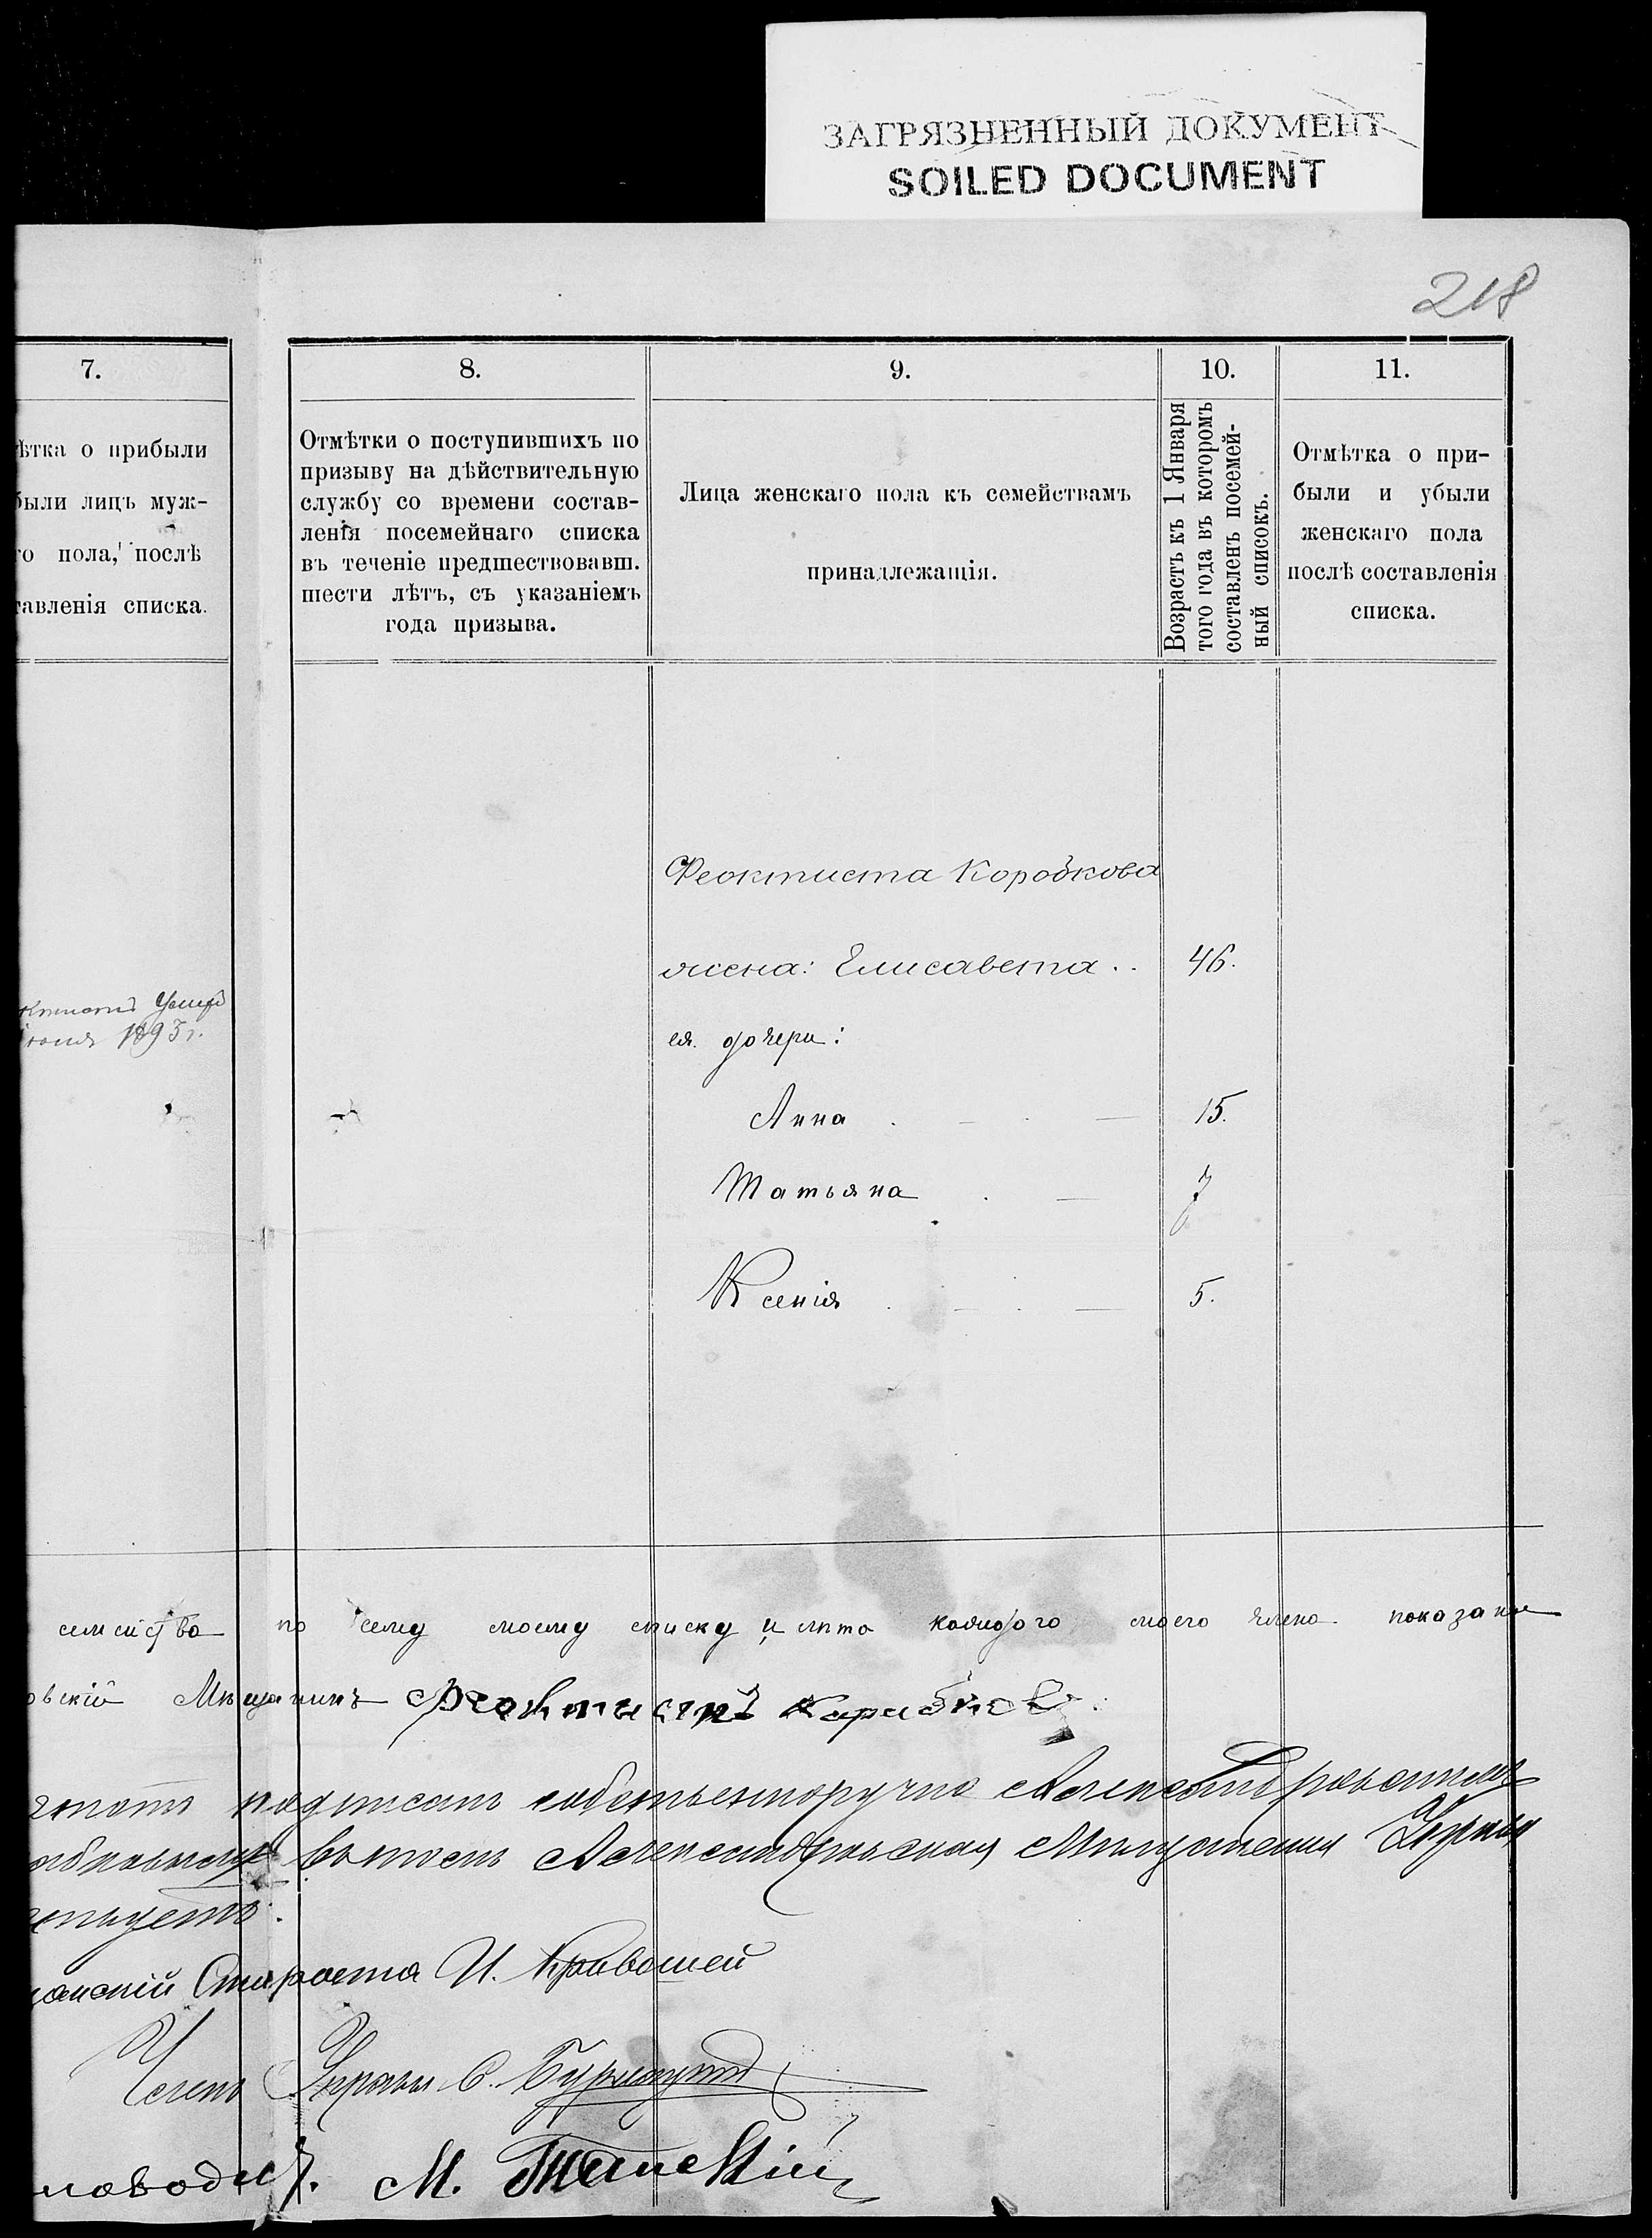 ЗАГРЯЗНЕННЫЙ ДОКУМЕНТ
SOILED DOCUMENT
218
7.
ѣтка о прибыли
были лицъ муж-
го пола, послѣ
тавленія списка.
8.
Отмѣтки о поступившихъ по
призыву на дѣйствительную
службу со времени состав-
ленія посемейнаго списка
въ теченіе предшествовавш.
шести лѣтъ, съ указаніемъ
года призыва.
9.
Лица женскаго пола къ семействамъ
принадлежащія.
10.
Возрастъ къ 1 Января
того года въ которомъ
составленъ посемей-
ный списокъ.
11.
Отмѣтка о при-
были и убыли
женскаго пола
послѣ составленія
списка.
Феоктиста Коробкова
жена: Елисавета . . 46.
1893 г.
ея дочери:
Анна 15.
Татьяна 7
Ксенія 5.
семейства по сему моему списку и лѣта каждого моего члена показаны
овскій Мѣщанинъ Феоктистъ Карабков
подписалъ собственноручно
въ томъ Александровская Мѣщанская Управа
Староста И. Кривошей
Членъ Управы
М.